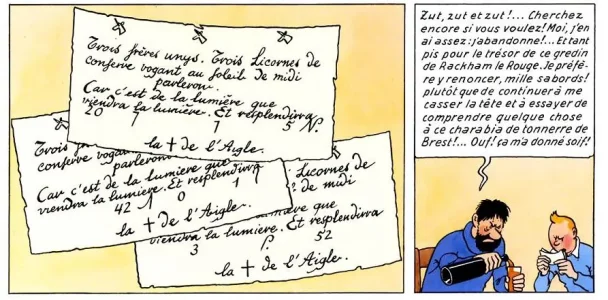 Trois frères unys. Trois Licornes de
conserve vogant au soleil de midi
parleron.
Car c'est de la lumière que
viendra la lumière. Et resplendira
20 7 1 5 N.
la + de l'Aigle.
Trois
conserve vogant
parleron
Car c'est de la lumière que
viendra la lumière. Et resplendira
42 1 0 1
la + de l'Aigle.
Licornes de
de midi
que
viendra la lumière. Et resplendira
3 52
la + de l'Aigle.
Zut, zut et zut !... Cherchez
encore si vous voulez! Moi, j'en
ai assez: j'abandonne!... Et tant
pis pour le trésor de ce gredin
de Rackham le Rouge. Je préfé-
re y renoncer, mille sabords!
plutôt que de continuer à me
casser la tête et à essayer de
comprendre quelque chose
à ce charabia de tonnerre de
Brest!... Ouf! ça m'a donné soif!